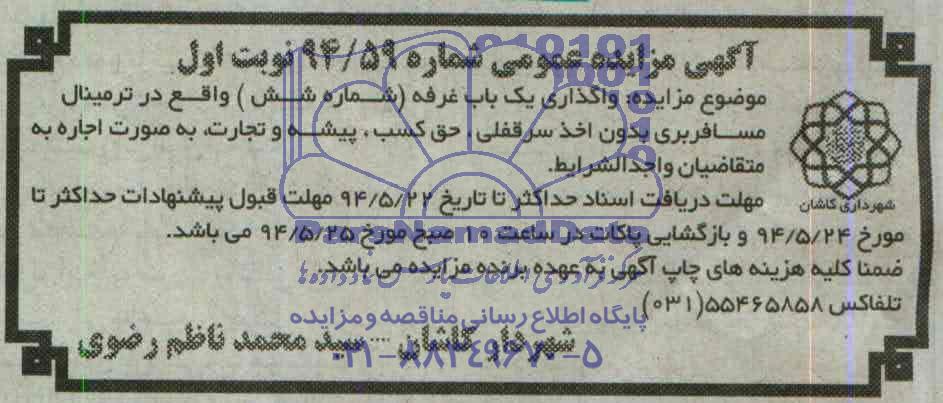 آگهی مزایده عمومی شماره ۹۴/۵۹ نوبت اول
موضوع مزایده: واگذاری یک باب غرفه (شماره شش) واقع در ترمینال
مسافربری بدون اخذ سرقفلی، حق کسب، پیشه و تجارت، به صورت اجاره به
متقاضیان واجدالشرایط.
مهلت دریافت اسناد حداکثر تا تاریخ ۹۴/۵/۲۲ مهلت قبول پیشنهادات حداکثر تا
شهرداری کاشان
مورخ ۹۴/۵/۲۴ و بازگشایی پاکات در ساعت ۱۰ صبح مورخ ۹۴/۵/۲۵ می باشد.
ضمنا کلیه هزینه های چاپ آگهی به عهده برنده مزایده می باشد.
تلفاکس ۵۵۴۶۵۸۵۸(۰۳۱)
پایگاه اطلاع رسانی مناقصه و مزایده
شهردار کاشان ... سید محمد ناظم رضوی
۰۲۱-۸۸۳۴۹۶۷۰-۵